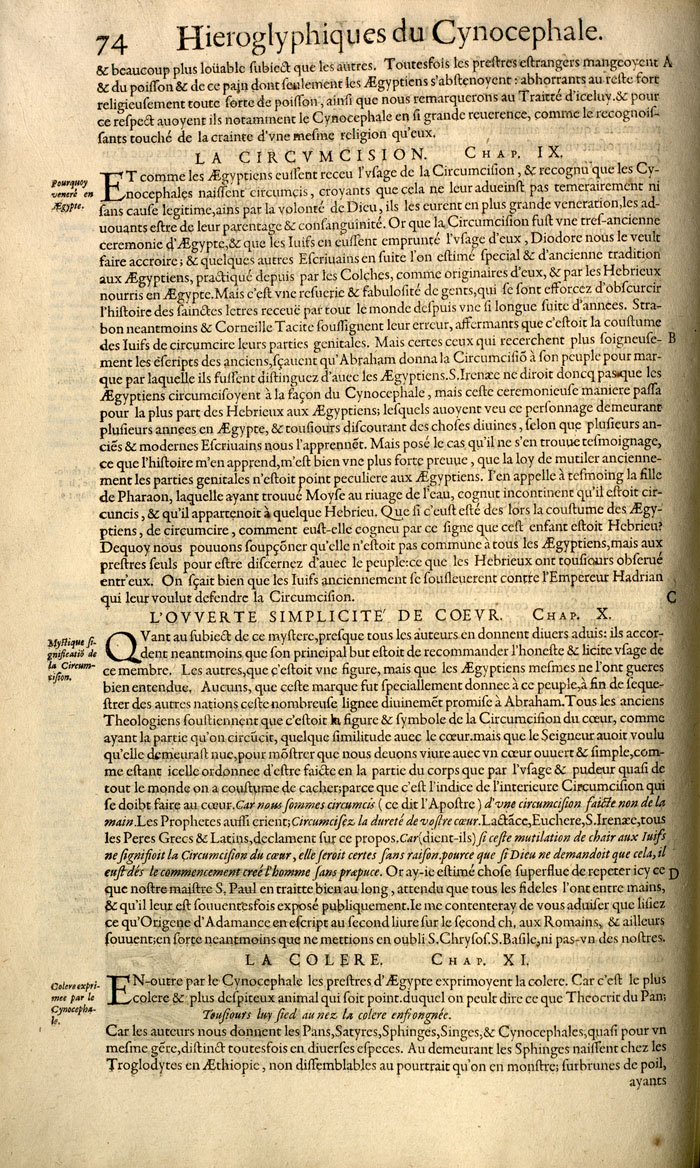 74 Hieroglyphiques du Cynocephale.
& beaucoup plus loüable subiect que les autres. Toutesfois les prestres estrangers mangeoyent A
& du poisson & de ce pain dont seulement les Ægyptiens s'abstenoyent: abhorrants au reste fort
religieusement toute sorte de poisson, ainsi que nous remarquerons au Traitté d'iceluy. & pour
ce respect auoyent ils notamment le Cynocephale en si grande reuerence, comme le recognois-
sants touché de la crainte d'vne mesme religion qu'eux.
LA CIRCVMCISION. CHAP. IX.
Pourquoy
veneré en
Ægypte.
ET comme les Ægyptiens eussent receu l'vsage de la Circumcision, & recognu que les Cy-
nocephales naissent circumcis, croyants que cela ne leur adueinst pas temerairement ni
sans cause legitime, ains par la volonté de Dieu, ils les eurent en plus grande veneration, les ad-
uouants estre de leur parentage & consanguinité. Or que la Circumcision fust vne tres-ancienne
ceremonie d'Ægypte, & que les Iuifs en eussent emprunté l'vsage d'eux, Diodore nous le veult
faire accroire; & quelques autres Escriuains en suite l'on estimé special & d'ancienne tradition
aux Ægyptiens, practiqué depuis par les Colches, comme originaires d'eux, & par les Hebrieux
nourris en Ægypte. Mais c'est vne resuerie & fabulosité de gents, qui se sont efforcez d'obscurcir
l'histoire des sainctes letres receuë par tout le monde despuis vne si longue suite d'annees. Stra-
bon neantmoins & Corneille Tacite soussignent leur erreur, affermants que c'estoit la coustume
des Iuifs de circumcire leurs parties genitales. Mais certes ceux qui recerchent plus soigneuse- B
ment les escripts des anciens, sçauent qu'Abraham donna la Circumcisiō à son peuple pour mar-
que par laquelle ils fussent distinguez d'auec les Ægyptiens. S. Irenæe ne diroit doncq pas que les
Ægyptiens circumcisoyent à la façon du Cynocephale, mais ceste ceremonieuse maniere passa
pour la plus part des Hebrieux aux Ægyptiens; lesquels auoyent veu ce personnage demeurant
plusieurs annees en Ægypte, & tousiours discourant des choses diuines, selon que plusieurs an-
ciēs & modernes Escriuains nous l'apprennēt. Mais posé le cas qu'il ne s'en trouue tesmoignage,
ce que l'histoire m'en apprend, m'est bien vne plus forte preuue, que la loy de mutiler ancienne-
ment les parties genitales n'estoit point peculiere aux Ægyptiens. I'en appelle à tesmoing la fille
de Pharaon, laquelle ayant trouué Moyse au riuage de l'eau, cognut incontinent qu'il estoit cir-
cuncis, & qu'il appartenoit à quelque Hebrieu. Que si c'eust esté des lors la coustume des Ægy-
ptiens, de circumcire, comment eust-elle cogneu par ce signe que cest enfant estoit Hebrieu?
Dequoy nous pouuons soupçōner qu'elle n'estoit pas commune à tous les Ægyptiens, mais aux
prestres seuls pour estre discernez d'auec le peuple: ce que les Hebrieux ont tousiours obserué
entr'eux. On sçait bien que les Iuifs anciennement se sousleuerent contre l'Empereur Hadrian
qui leur voulut defendre la Circumcision. C
L'OVVERTE SIMPLICITE' DE COEVR. CHAP. X.
Mystique si-
gnificatiō de
la Circum-
cision.
QVant au subiect de ce mystere, presque tous les auteurs en donnent diuers aduis: ils accor-
dent neantmoins que son principal but estoit de recommander l'honeste & licite vsage de
ce membre. Les autres, que c'estoit vne figure, mais que les Ægyptiens mesmes ne l'ont gueres
bien entendue. Aucuns, que ceste marque fut specialement donnee à ce peuple, à fin de seque-
strer des autres nations ceste nombreuse lignee diuinemēt promise à Abraham. Tous les anciens
Theologiens soustiennent que c'estoit la figure & symbole de la Circumcision du cœur, comme
ayant la partie qu'on circūcit, quelque similitude auec le cœur. mais que le Seigneur auoit voulu
qu'elle demeurast nue, pour mōstrer que nous deuons viure auec vn cœur ouuert & simple, com-
me estant icelle ordonnee d'estre faicte en la partie du corps que par l'vsage & pudeur quasi de
tout le monde on a coustume de cacher; parce que c'est l'indice de l'interieure Circumcision qui
se doibt faire au cœur. Car nous sommes circumcis (ce dit l'Apostre) d'vne circumcision faicte non de la
main. Les Prophetes aussi crient; Circumcisez la dureté de vostre cœur. Lactāce, Euchere, S. Irenæe, tous
les Peres Grecs & Latins, declament sur ce propos. Car (dient-ils) si ceste mutilation de chair aux Iuifs
ne signifioit la Circumcision du cœur, elle seroit certes sans raison. pource que si Dieu ne demandoit que cela, il
eust dés le commencement creé l'homme sans prapuce. Or ay-ie estimé chose superflue de repeter icy ce D
que nostre maistre S. Paul en traitte bien au long, attendu que tous les fideles l'ont entre mains,
& qu'il leur est souuentesfois exposé publiquement. Ie me contenteray de vous aduiser que lisiez
ce qu'Origene d'Adamance en escript au second liure sur le second ch. aux Romains, & ailleurs
souuent; en sorte neantmoins que ne mettions en oubli S. Chrysos. S. Basile, ni pas-vn des nostres.
LA COLERE. CHAP. XI.
Colere expri-
mee par le
Cynocepha-
le.
EN-outre par le Cynocephale les prestres d'Ægypte exprimoyent la colere. Car c'est le plus
colere & plus despiteux animal qui soit point. duquel on peult dire ce que Theocrit du Pan;
Tousiours luy sied au nez la colere enfrongnée.
Car les auteurs nous donnent les Pans, Satyres, Sphinges, Singes, & Cynocephales, quasi pour vn
mesme gēre, distinct toutesfois en diuerses especes. Au demeurant les Sphinges naissent chez les
Troglodytes en Æthiopie, non dissemblables au pourtrait qu'on en monstre; surbrunes de poil,
ayants